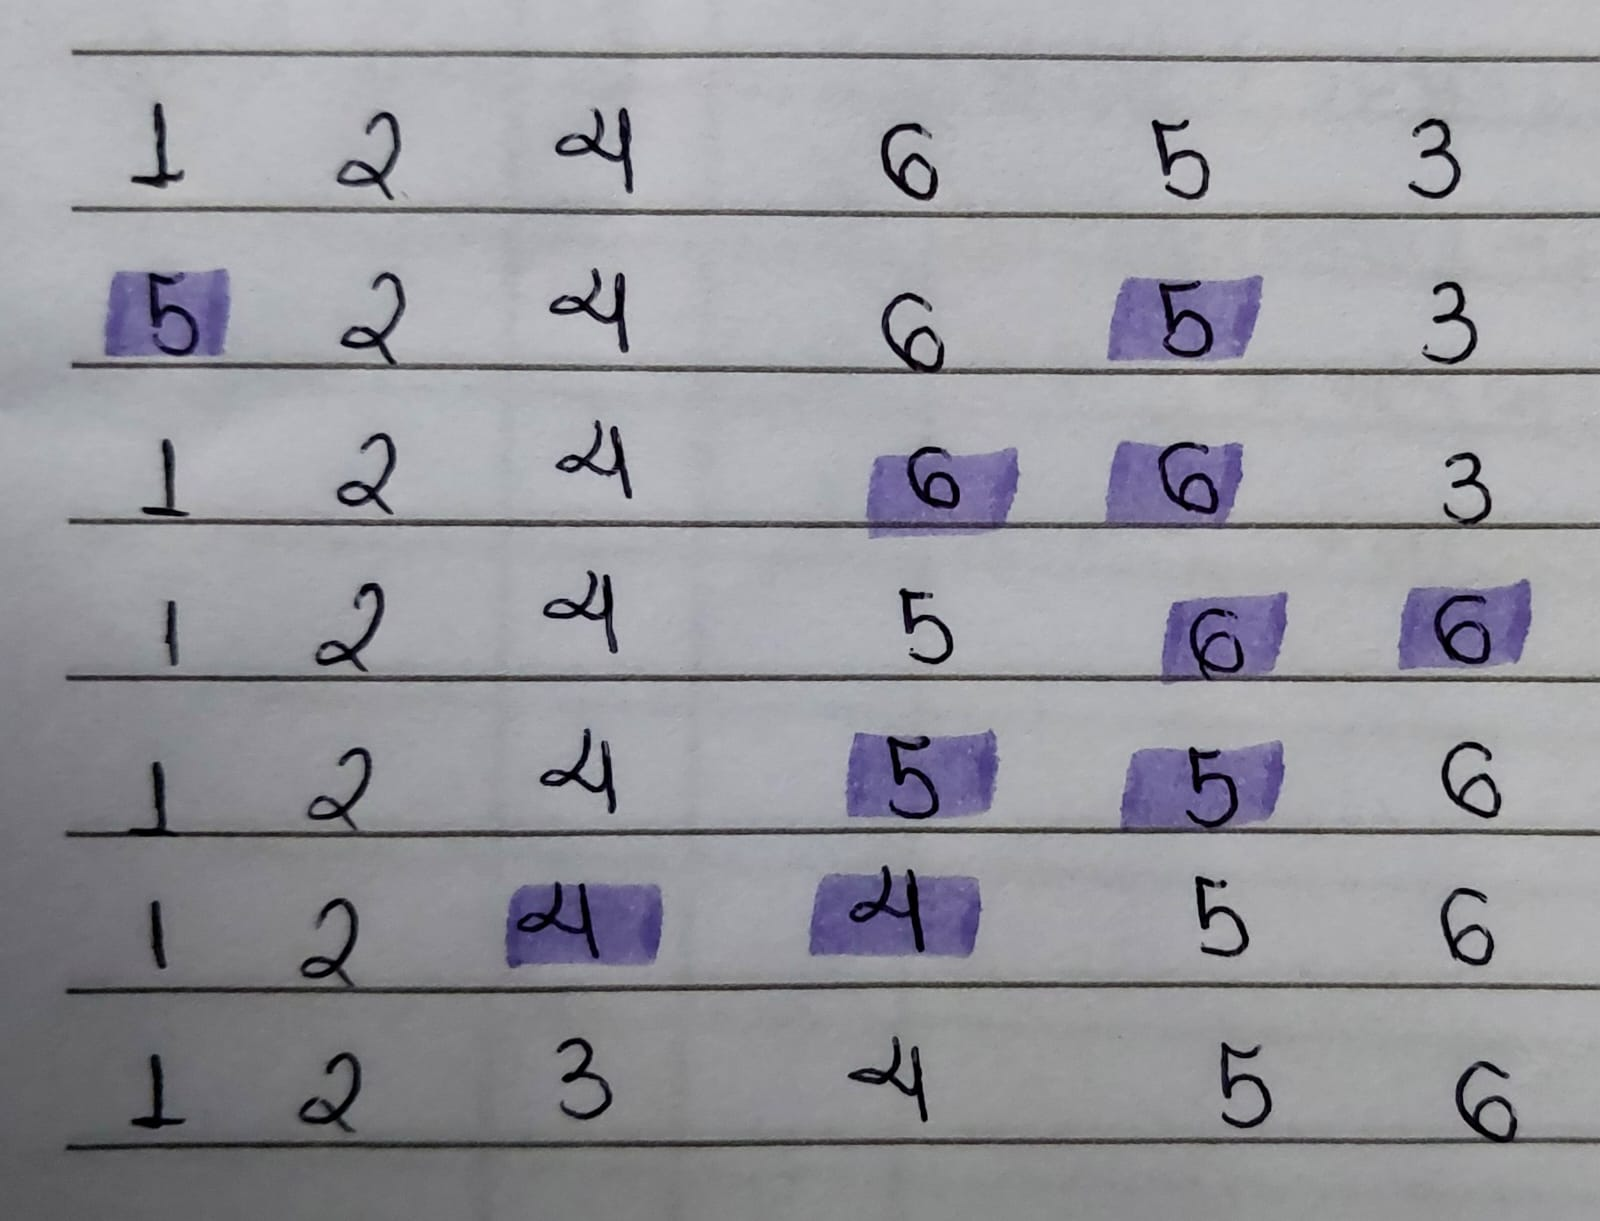 1 2 4 6 5 3
5 2 4 6 5 3
1 2 4 6 6 3
1 2 4 5 6 6
1 2 4 5 5 6
1 2 4 4 5 6
1 2 3 4 5 6